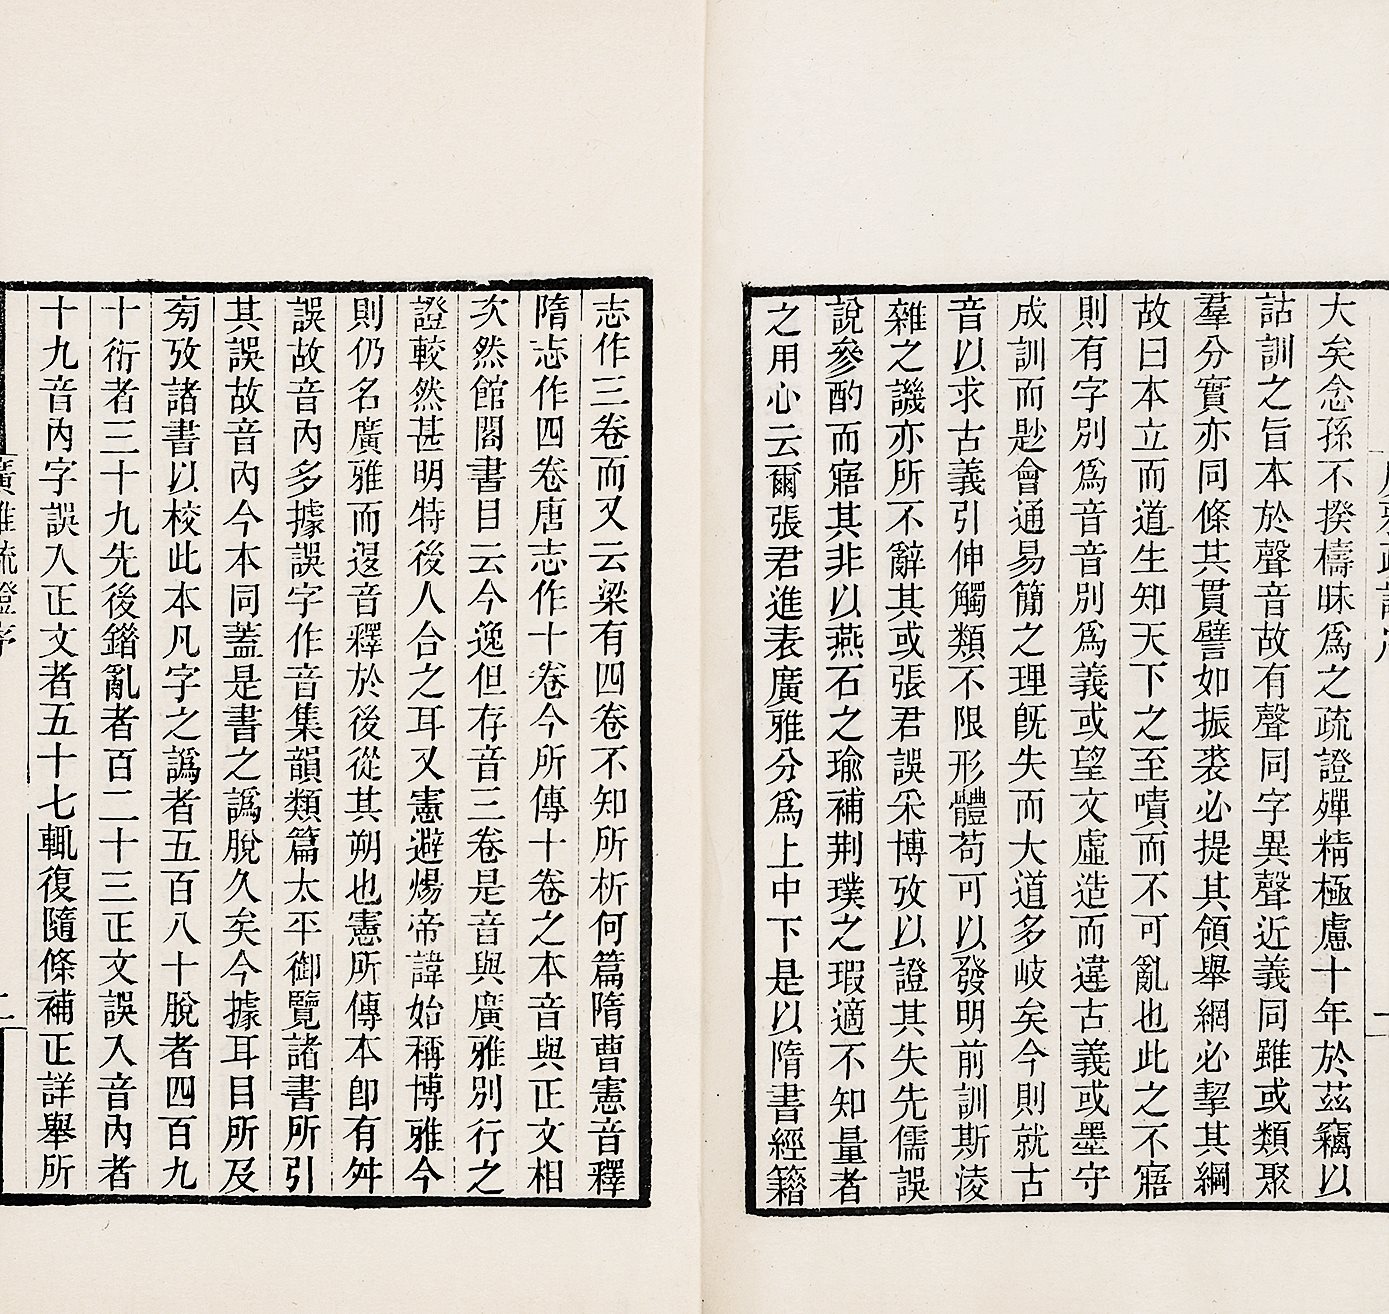 大矣念孫不揆檮昧爲之疏證殫精極慮十年於茲竊以
詁訓之旨本於聲音故有聲同字異聲近義同雖或類聚
羣分實亦同條共貫譬如振裘必提其領舉網必挈其綱
故曰本立而道生知天下之至嘖而不可亂也此之不寤
則有字別爲音音別爲義或望文虛造而違古義或墨守
成訓而尟會通易簡之理旣失而大道多岐矣今則就古
音以求古義引伸觸類不限形體苟可以發明前訓斯淩
雜之譏亦所不辭其或張君誤采博攷以證其失先儒誤
說參酌而寤其非以燕石之瑜補荆璞之瑕適不知量者
之用心云爾張君進表廣雅分爲上中下是以隋書經籍
志作三卷而又云梁有四卷不知所析何篇隋曹憲音釋
隋志作四卷唐志作十卷今所傳十卷之本音與正文相
次然館閣書目云今逸但存音三卷是音與廣雅別行之
證較然甚明特後人合之耳又憲避煬帝諱始稱博雅今
則仍名廣雅而退音釋於後從其朔也憲所傳本卽有舛
誤故音內多據誤字作音集韻類篇太平御覽諸書所引
其誤故音內今本同蓋是書之譌脫久矣今據耳目所及
旁攷諸書以校此本凡字之譌者五百八十脫者四百九
十衍者三十九先後錯亂者百二十三正文誤入音內者
十九音內字誤入正文者五十七輒復隨條補正詳舉所
廣雅疏證序
二